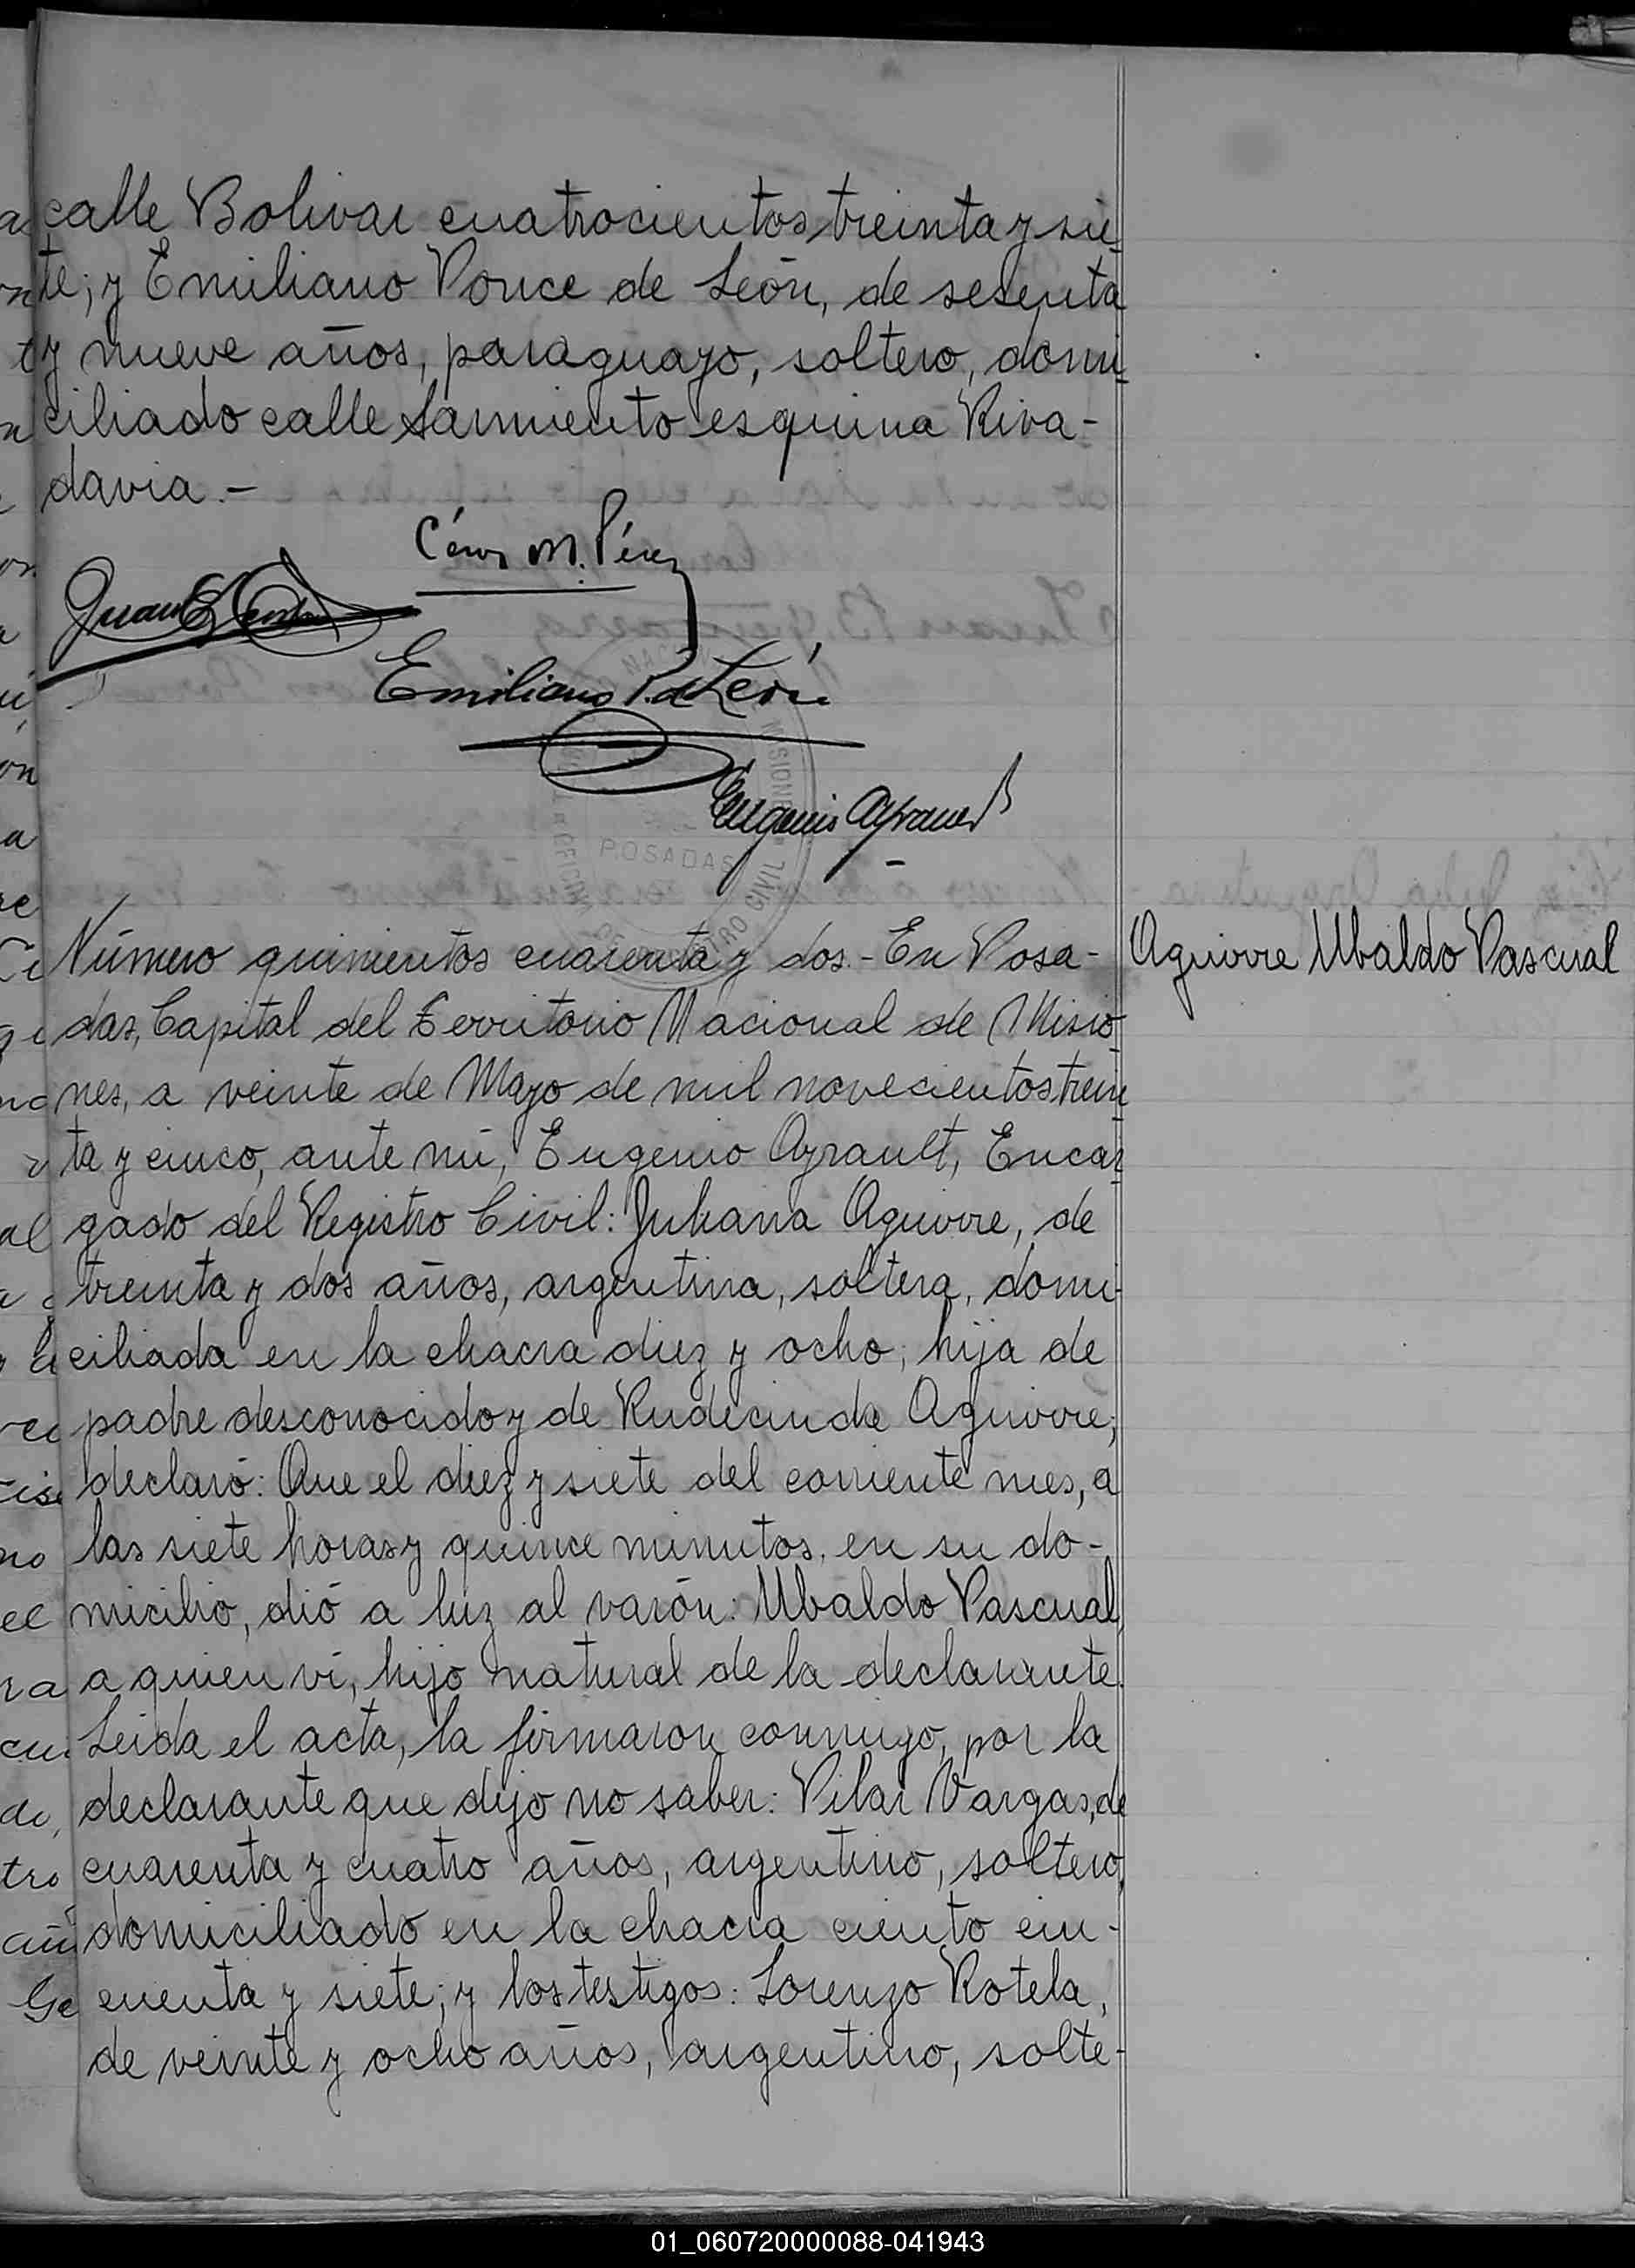 calle Bolivar cuatrocientos treinta y sie-
te; y Emiliano Ponce de León, de sesenta
y nueve años, paraguayo, soltero, domi-
ciliado calle Sarmiento esquina Riva-
davia.-
César M. Pérez
Juan
Emiliano P. de León
Eugenio Ayrault
POSADAS
Número quinientos cuarenta y dos.- En Posa-
Aguirre Ubaldo Pascual
das, Capital del Territorio Nacional de Misio-
nes, a veinte de Mayo de mil novecientos trein
ta y cinco, ante mi, Eugenio Ayrault, Encar
gado del Registro Civil: Juliana Aguirre, de
treinta y dos años, argentina, soltera, domi-
ciliada en la chacra diez y ocho; hija de
padre desconocido y de Rudecinda Aguirre;
declaró: Que el diez y siete del corriente mes, a
las siete horas y quince minutos, en su do-
micilio, dió a luz al varón: Ubaldo Pascual,
a quien vi, hijo natural de la declarante.
Leida el acta, la firmaron conmigo, por la
declarante que dijo no saber: Pilar Vargas, de
cuarenta y cuatro años, argentino, soltero,
domiciliado en la chacra ciento cin-
cuenta y siete; y los testigos: Lorenzo Rotela,
de veinte y ocho años, argentino, solte-
01_060720000088-041943